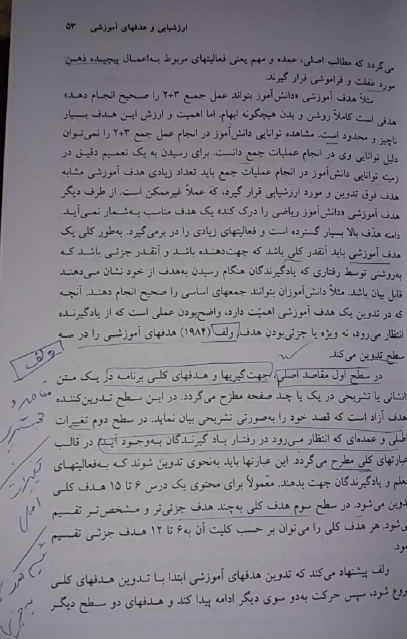 ارزشیابی و هدفهای آموزشی ۵۳
می‌گردد که مطالب اصلی، عمده و مهم یعنی فعالیتهای مربوط به‌اعمال پیچیده ذهن
مورد غفلت و فراموشی قرار گیرند.
مثلاً هدف آموزشی «دانش‌آموز بتواند عمل جمع ۲+۳ را صحیح انجام دهد»
هدفی است کاملاً روشن و بدن هیچگونه ابهام. اما اهمیت و ارزش این هدف بسیار
ناچیز و محدود است. مشاهده توانایی دانش‌آموز در انجام عمل جمع ۲+۳ را نمی‌توان
دلیل توانایی وی در انجام عملیات جمع دانست. برای رسیدن به یک تعمیم دقیق در
زمینه توانایی دانش‌آموز در انجام عملیات جمع باید تعداد زیادی هدف آموزشی مشابه
هدف فوق تدوین و مورد ارزشیابی قرار گیرد، که عملاً غیرممکن است. از طرف دیگر
هدف آموزشی «دانش‌آموز ریاضی را درک کند» یک هدف مناسب به‌شمار نمی‌آید.
دامنه هدف بالا بسیار گسترده است و فعالیتهای زیادی را در برمی‌گیرد. به‌طور کلی یک
هدف آموزشی باید آنقدر کلی باشد که جهت‌دهنده باشد و آنقدر جزئی باشد که
به‌روشنی توسط رفتاری که یادگیرندگان هنگام رسیدن به‌هدف از خود نشان می‌دهند
قابل بیان باشد. مثلاً دانش‌آموزان بتوانند جمعهای اساسی را صحیح انجام دهند. آنچه
که در تدوین یک هدف آموزشی اهمیّت دارد، واضح‌بودن عملی است که از یادگیرنده
انتظار می‌رود، نه ویژه یا جزئی‌بودن هدف. ولف (۱۹۸۴) هدفهای آموزشی را در سه
سطح تدوین می‌کند.
در سطح اول مقاصد اصلی، جهت‌گیریها و هدفهای کلی برنامه در یک متن
انشائی یا تشریحی در یک یا چند صفحه مطرح می‌گردد. در این سطح تدوین‌کننده
هدف آزاد است که قصد خود را به‌صورتی تشریحی بیان نماید. در سطح دوم تغییرات
اصلی و عمده‌ای که انتظار می‌رود در رفتار یادگیرندگان به‌وجود آید در قالب
عبارتهای کلی مطرح می‌گردد. این عبارتها باید به‌نحوی تدوین شوند که به‌فعالیتهای
معلم و یادگیرندگان جهت بدهند. معمولاً برای محتوی یک درس ۶ تا ۱۵ هدف کلی
تدوین می‌شود. در سطح سوم هدف کلی به‌چند هدف جزئی‌تر و مشخص‌تر تقسیم
می‌شود. هر هدف کلی را می‌توان بر حسب کلیت آن به‌۶ تا ۱۲ هدف جزئی تقسیم
نمود.
ولف پیشنهاد می‌کند که تدوین هدفهای آموزشی ابتدا با تدوین هدفهای کلی
شروع شود، سپس حرکت به‌دو سوی دیگر ادامه پیدا کند و هدفهای دو سطح دیگر
ولف